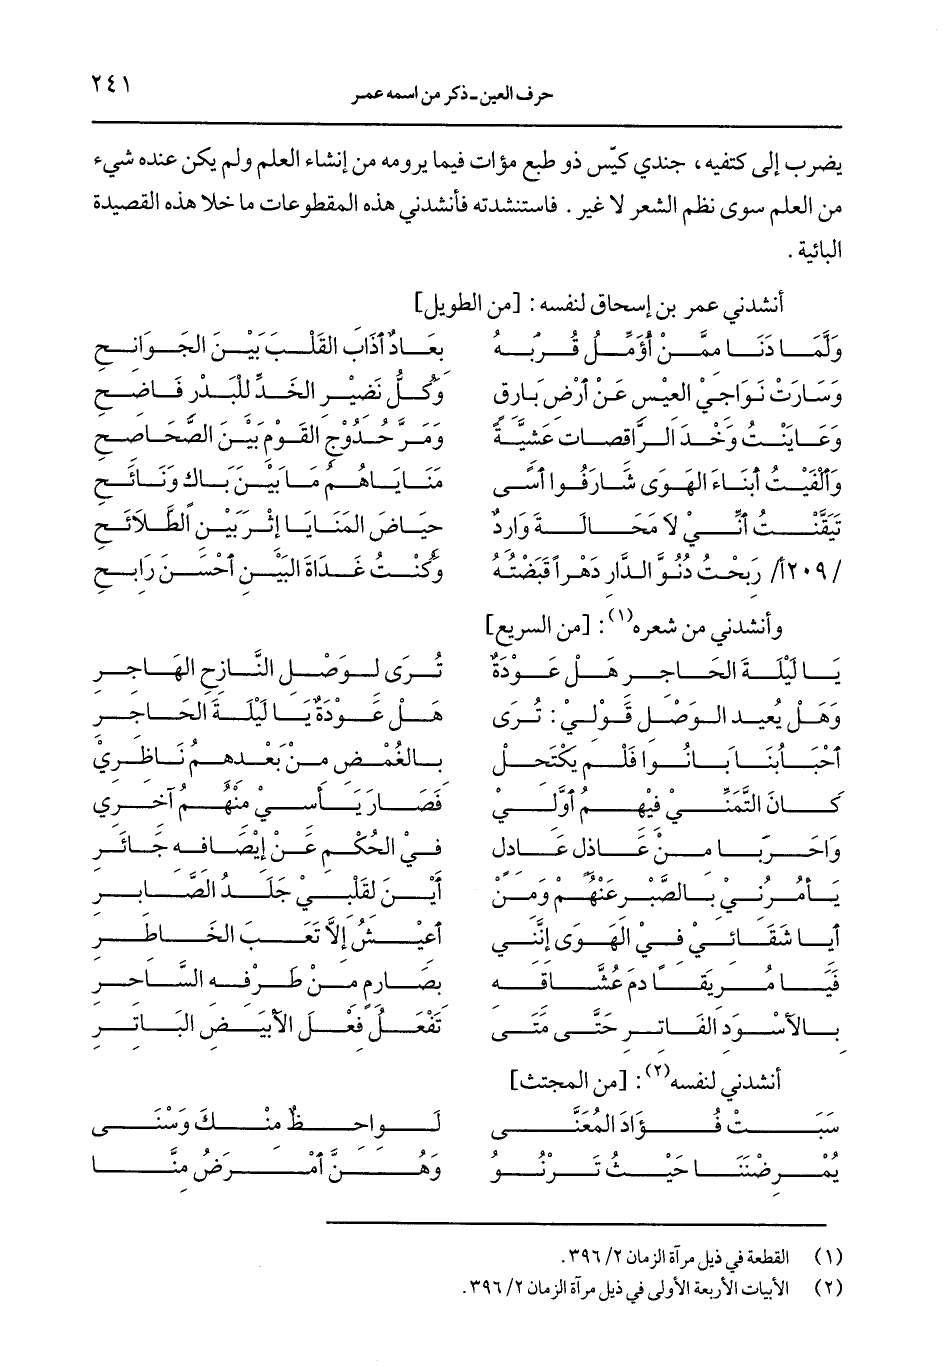 حرف العين ـ ذكر من اسمه عمر ٢٤١
يضرب إلى كتفيه، جندي كيّس ذو طبع مؤات فيما يرومه من إنشاء العلم ولم يكن عنده شيء
من العلم سوى نظم الشعر لا غير . فاستنشدته فأنشدني هذه المقطوعات ما خلا هذه القصيدة
البائية .
أنشدني عمر بن إسحاق لنفسه : [من الطويل]
وَلَمَّا دَنَا مِمَّنْ أُؤَمِّلُ قُرْبَهُ بِعَادٌ أَذَابَ القَلْبَ بَيْنَ الجَوَانِحِ
وَسَارَتْ نَوَاجِيْ العِيْسِ عَنْ أَرْضِ بَارِقٍ وَكُلُّ نَضِيْرِ الخَدِّ لِلْبَدْرِ فَاضِحِ
وَعَايَنْتُ وَخْدَ الرَّاقِصَاتِ عَشِيَّةً وَمَرَّ حُدُوْجِ القَوْمِ بَيْنَ الصَّحَاصِحِ
وَأَلْفَيْتُ أَبْنَاءَ الهَوَى شَارَفُوا أَسًى مَنَايَاهُمُ مَا بَيْنَ بَاكٍ وَنَائِحِ
تَيَقَّنْتُ أَنِّيْ لاَ مَحَالَةَ وَارِدٌ حِيَاضَ المَنَايَا إِثْرَ بَيْنِ الطَّلَائِحِ
/٢٠٩أ/ رَبِحْتُ دُنُوَّ الدَّارِ دَهْراً قَبَضْتُهُ وَكُنْتُ غَدَاةَ البَيْنِ أَحْسَنَ رَابِحِ
وأنشدني من شعره(١) : [من السريع]
يَا لَيْلَةَ الحَاجِرِ هَلْ عَوْدَةٌ تُرَى لِوَصْلِ النَّازِحِ الهَاجِرِ
وَهَلْ يُعِيدُ الوَصْلَ قَوْلِيْ : تُرَى هَلْ عَوْدَةٌ يَا لَيْلَةَ الحَاجِرِ
أَحْبَابُنَا بَانُوا فَلَمْ يَكْتَحِلْ بِالغُمْضِ مِنْ بَعْدِهِمُ نَاظِرِيْ
كَانَ التَّمَنِّيْ فِيْهِمُ أَوَّلِيْ فَصَارَ يَأْسِيْ مِنْهُمُ آخِرِي
وَاحَرَبَا مِنْ عَاذِلٍ عَادِلٍ فِيْ الحُكْمِ عَنْ إِنْصَافِهِ جَائِرِ
يَأْمُرُنِيْ بِالصَّبْرِ عَنْهُمْ وَمِنْ أَيْنَ لِقَلْبِيْ جَلَدُ الصَّابِرِ
أَيَا شَقَائِيْ فِيْ الهَوَى إِنَّنِي أَعِيْشُ إِلاَّ تَعِبَ الخَاطِرِ
فَيَا مُرِيقاً دَمَ عُشَّاقِهِ بِصَارِمٍ مِنْ طَرْفِهِ السَّاحِرِ
بِالأَسْوَدِ الفَاتِرِ حَتَّى مَتَى تَفْعَلُ فِعْلَ الأَبْيَضِ البَاتِرِ
أنشدني لنفسه(٢) : [من المجتث]
سَبَتْ فُؤَادَ المُعَنَّى لَوَاحِظٌ مِنْكَ وَسْنَى
يُمْرِضْنَنَا حَيْثُ تَرْنُو وَهُنَّ أَمْرَضُ مِنَّا
(١) القطعة في ذيل مرآة الزمان ٢/ ٣٩٦.
(٢) الأبيات الأربعة الأولى في ذيل مرآة الزمان ٢/ ٣٩٦.